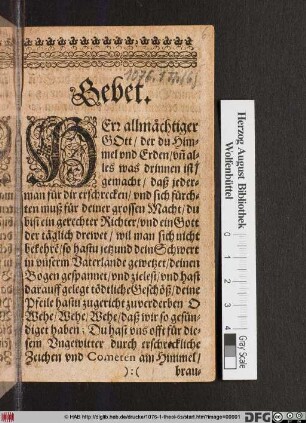 1076.1 Th(6)
Gebet.
HErr allmächtiger
GOtt / der du Him⸗
mel vnd Erden / vñ al⸗
les was drinnen ist /
gemacht / daß jeder⸗
man für dir erschrecken / vnd sich fürch⸗
ten muß für deiner grossen Macht / du
bist ein gerechter Richter / vnd ein Gott
der täglich drewet / wil man sich nicht
bekehrē / so hastu jetzund dein Schwert
in vnserm Vaterlande gewetzet / deinen
Bogen gespannet / vnd zielest / vnd hast
darauff gelegt tödtliche Geschöß / deine
Pfeile hastu zugericht zuverderben O
Wehe / Wehe / Wehe / daß wir so gesün⸗
diget haben. Du hast vns offt für die⸗
sem Vngewitter durch erschreckliche
Zeichen vnd Cometen am Himmel /
):( brau⸗
Herzog August Bibliothek
Wolfenbüttel
Gray Scale
© HAB http://diglib.hab.de/drucke/1076-1-theol-6s/start.htm?image=00001
DFG